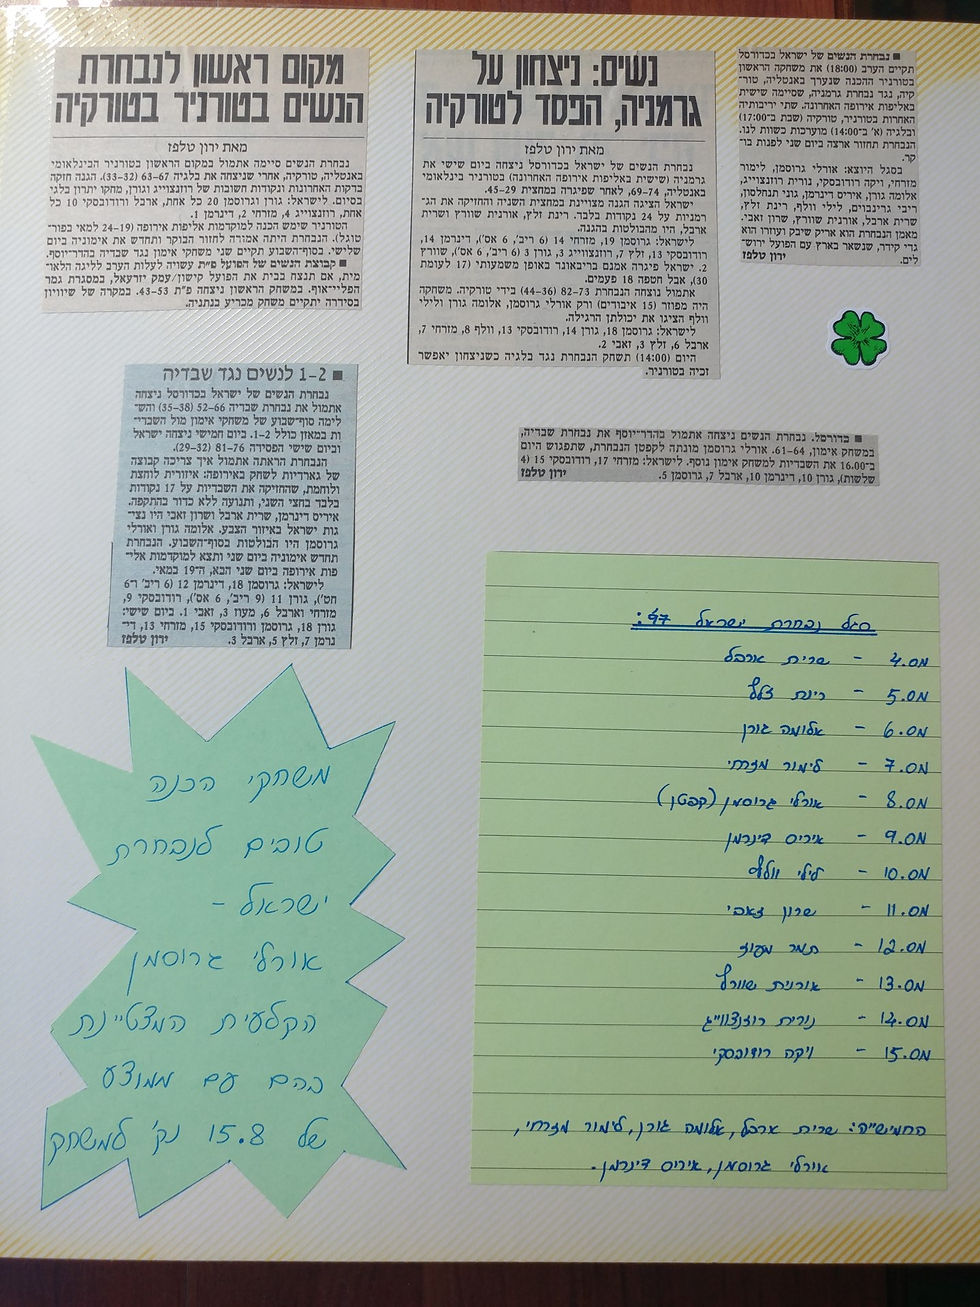 ■ נבחרת הנשים של ישראל בכדורסל
תקיים הערב (18:00) את משחקה הראשון
בטורניר ההכנה שנערך באנטליה, טור־
קיה, נגד נבחרת גרמניה, שסיימה שישית
באליפות אירופה האחרונה. שתי יריבותיה
האחרות בטורניר, טורקיה (שבת ב־17:00)
ובלגיה (א' ב־14:00) מוערכות כשוות לנו.
הנבחרת תחזור ארצה ביום שני לפנות בו־
קר.
בסגל היוצא: אורלי גרוסמן, לימור
מזרחי, ויקה רודובסקי, נורית רוזנצווייג,
אלומה גורן, איריס דינרמן, גוני תנחלסון,
ריבי גרינבוים, לילי וולף, רינת זלץ,
שרית ארבל, אורנית שוורץ, שרון זאבי.
מאמן הנבחרת הוא אריק שיבק ועוזרו הוא
גדי קידר, שנשאר בארץ עם הפועל ירוש־
לים. ירון טלפז
נשים: ניצחון על
גרמניה, הפסד לטורקיה
מאת ירון טלפז
נבחרת הנשים של ישראל בכדורסל ניצחה ביום שישי את
גרמניה (שישית באליפות אירופה האחרונה) בטורניר בינלאומי
באנטליה, 69–74, לאחר שפיגרה במחצית 45–29.
ישראל הציגה הגנה מצויינת במחצית השניה והחזיקה את הג־
רמניות על 24 נקודות בלבד. רינת זלץ, אורנית שוורץ ושרית
ארבל, היו מהבולטות בהגנה.
לישראל: גרוסמן 19, מזרחי 14 (6 ריב', 6 אס'), דינרמן 14,
רודובסקי 13, זלץ 7, רוזנצווייג 3, גורן 3 (6 ריב', 6 אס'), שוורץ
2. ישראל פיגרה אמנם בריבאונד באופן משמעותי (17 לעומת
30), אבל חטפה 18 פעמים.
אתמול נוצחה הנבחרת 82–73 (44–36) בידי טורקיה. משחקה
היה מפוזר (15 איבודים) ורק אורלי גרוסמן, אלומה גורן ולילי
וולף הציגו את יכולתן הרגילה.
לישראל: גרוסמן 18, גורן 14, רודובסקי 13, וולף 8, מזרחי 7,
ארבל 6, זלץ 3, זאבי 2.
היום (14:00) תשחק הנבחרת נגד בלגיה כשניצחון יאפשר
זכיה בטורניר.
מקום ראשון לנבחרת
הנשים בטורניר בטורקיה
מאת ירון טלפז
נבחרת הנשים סיימה אתמול במקום הראשון בטורניר הבינלאומי
באנטליה, טורקיה, אחרי שניצחה את בלגיה 63–67 (33–32). הגנה חזקה
בדקות האחרונות ונקודות חשובות של רוזנצווייג וגורן, מחקו יתרון בלגי
בסיום. לישראל: גורן וגרוסמן 20 כל אחת, ארבל ורודובסקי 10 כל
אחת, רוזנצווייג 4, מזרחי 2, דינרמן 1.
הטורניר שימש הכנה למוקדמות אליפות אירופה (19–24 למאי בפור־
טוגל). הנבחרת היתה אמורה לחזור הבוקר ותחדש את אימוניה ביום
שלישי. בסוף־השבוע תקיים שני משחקי אימון נגד שבדיה בהדר־יוסף.
■ קבוצת הנשים של הפועל פ"ת עשויה לעלות הערב לליגה הלאו־
מית, אם תנצח בבית את הפועל קישון/עמק יזרעאל, במסגרת גמר
הפליי־אוף. במשחק הראשון ניצחה פ"ת 43–53. במקרה של שיוויון
בסידרה יתקיים משחק מכריע בנתניה.
■ 1–2 לנשים נגד שבדיה
נבחרת הנשים של ישראל בכדורסל ניצחה
אתמול את נבחרת שבדיה 52–66 (35–38) והש־
לימה סוף־שבוע של משחקי אימון מול השבדי־
ות במאזן כולל 1–2. ביום חמישי ניצחה ישראל
וביום שישי הפסידה 76–81 (29–32).
הנבחרת הראתה אתמול איך צריכה קבוצה
של גארדיות לשחק באירופה: איזורית לוחצת
ולוחמת, שהחזיקה את השבדיות על 17 נקודות
בלבד בחצי השני, ותנועה ללא כדור בהתקפה.
איריס דינרמן, שרית ארבל ושרון זאבי היו נצי־
גות ישראל באיזור הצבע. אלומה גורן ואורלי
גרוסמן היו הבולטות בסוף־השבוע. הנבחרת
תחדש אימוניה ביום שני ותצא למוקדמות אלי־
פות אירופה ביום שני הבא, ה־19 במאי.
לישראל: גרוסמן 18, דינרמן 12 (6 ריב' ו־6
חט'), גורן 11 (9 ריב', 6 אס'), רודובסקי 9,
מזרחי וארבל 6, מעוז 3, זאבי 1. ביום שישי:
גורן 18, גרוסמן ורודובסקי 15, מזרחי 13, די־
נרמן 7, זלץ 5, ארבל 3. ירון טלפז
■ כדורסל. נבחרת הנשים ניצחה אתמול בהדר־יוסף את נבחרת שבדיה,
במשחק אימון, 61–64. אורלי גרוסמן מונתה לקפטן הנבחרת, שתפגוש היום
ב־16.00 את השבדיות למשחק אימון נוסף. לישראל: מזרחי 17, רודובסקי 15 (4
שלשות), גורן 10, דינרמן 10, ארבל 7, גרוסמן 5. ירון טלפז
סגל נבחרת ישראל 97':
מס.4 – שרית ארבל
מס.5 – רינת זלץ
מס.6 – אלומה גורן
מס.7 – לימור מזרחי
מס.8 – אורלי גרוסמן (קפטן)
מס.9 – איריס דינרמן
מס.10 – לילי וולף
מס.11 – שרון זאבי
מס.12 – תמר מעוז
מס.13 – אורנית שוורץ
מס.14 – נורית רוזנצווייג
מס.15 – ויקה רודובסקי
החמישייה: שרית ארבל, אלומה גורן, לימור מזרחי,
אורלי גרוסמן, איריס דינרמן.
משחקי הכנה
טובים לנבחרת
ישראל –
אורלי גרוסמן
הקלעית המצטיינת
בהם עם ממוצע
של 15.8 נק' למשחק